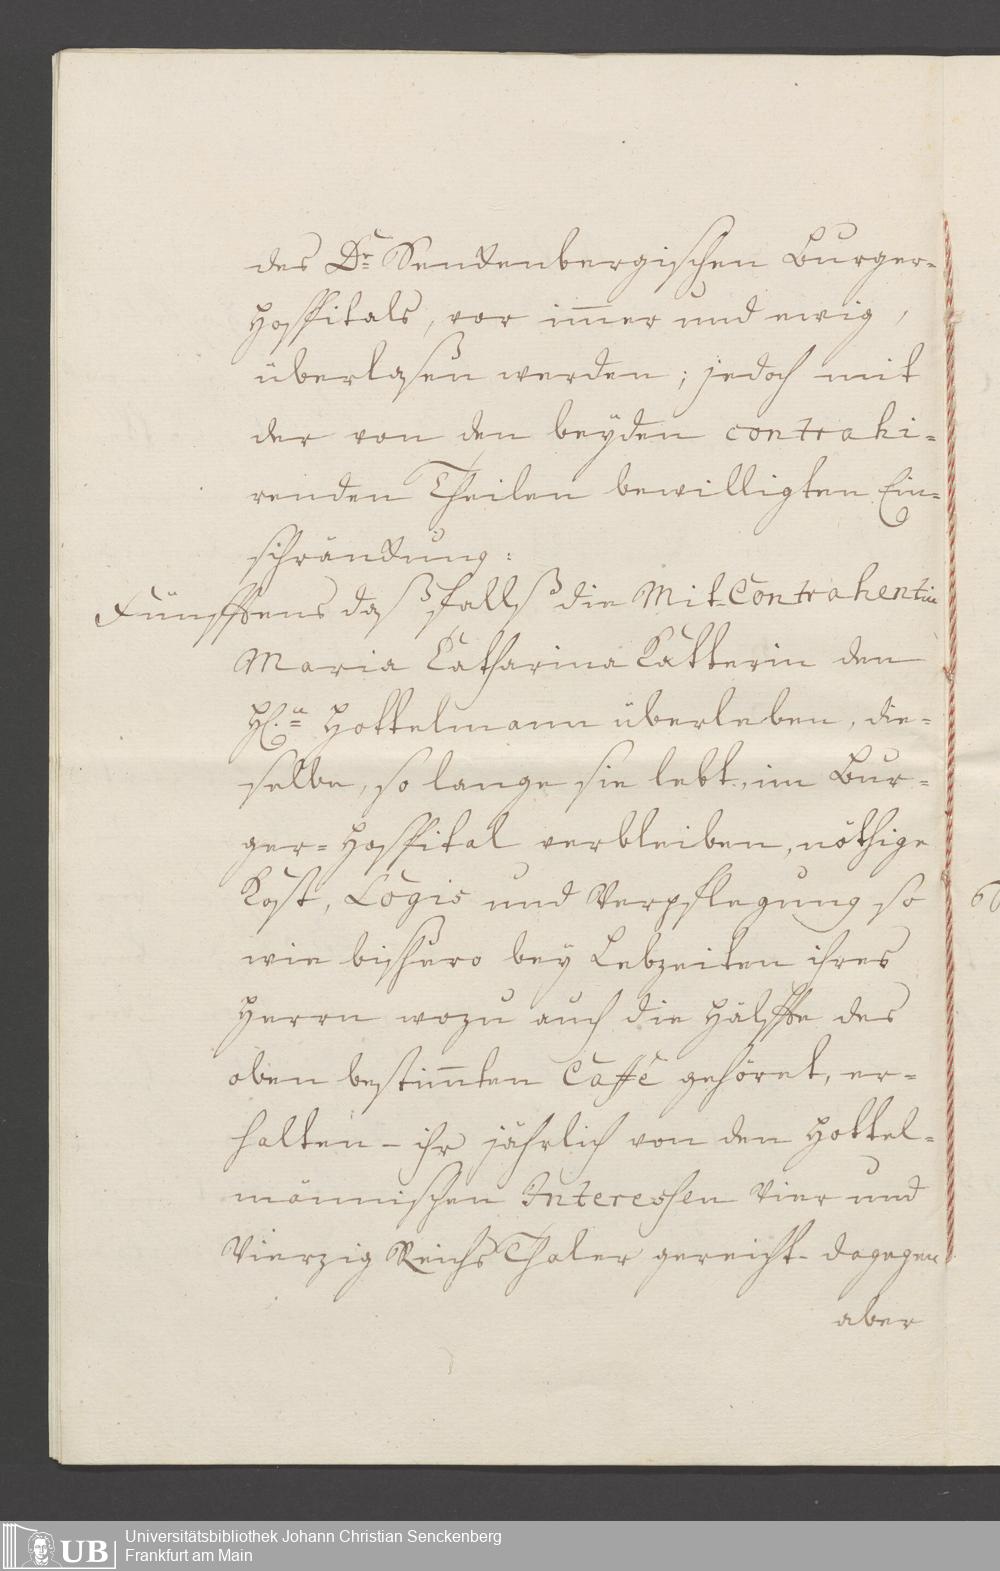 des Dr. Senckenbergischen Burger-
Hospitals, vor immer und ewig,
überlasen werden; jedoch mit
der von den beyden contrahi-
renden Theilen bewilligten Ein-
schränckung:
Fünfftens daß falls die Mit-Contrahentin
Maria Catharina Katterin den
H. Hottelmann überleben, die-
selbe, so lange sie lebt, im Bur-
ger-Hospital verbleiben, nöthige
Kost, Logis und Verpflegung so
wie bishero bey Lebzeiten ihres
Herrn wozu auch die Hälffte des
oben bestimten Caffé gehöret, er-
halten - ihr jährlich von den Hottel-
männischen Interessen Vier und
Vierzig Reichs Thaler gereicht - dagegen
aber
UB
Universitätsbibliothek Johann Christian Senckenberg
Frankfurt am Main